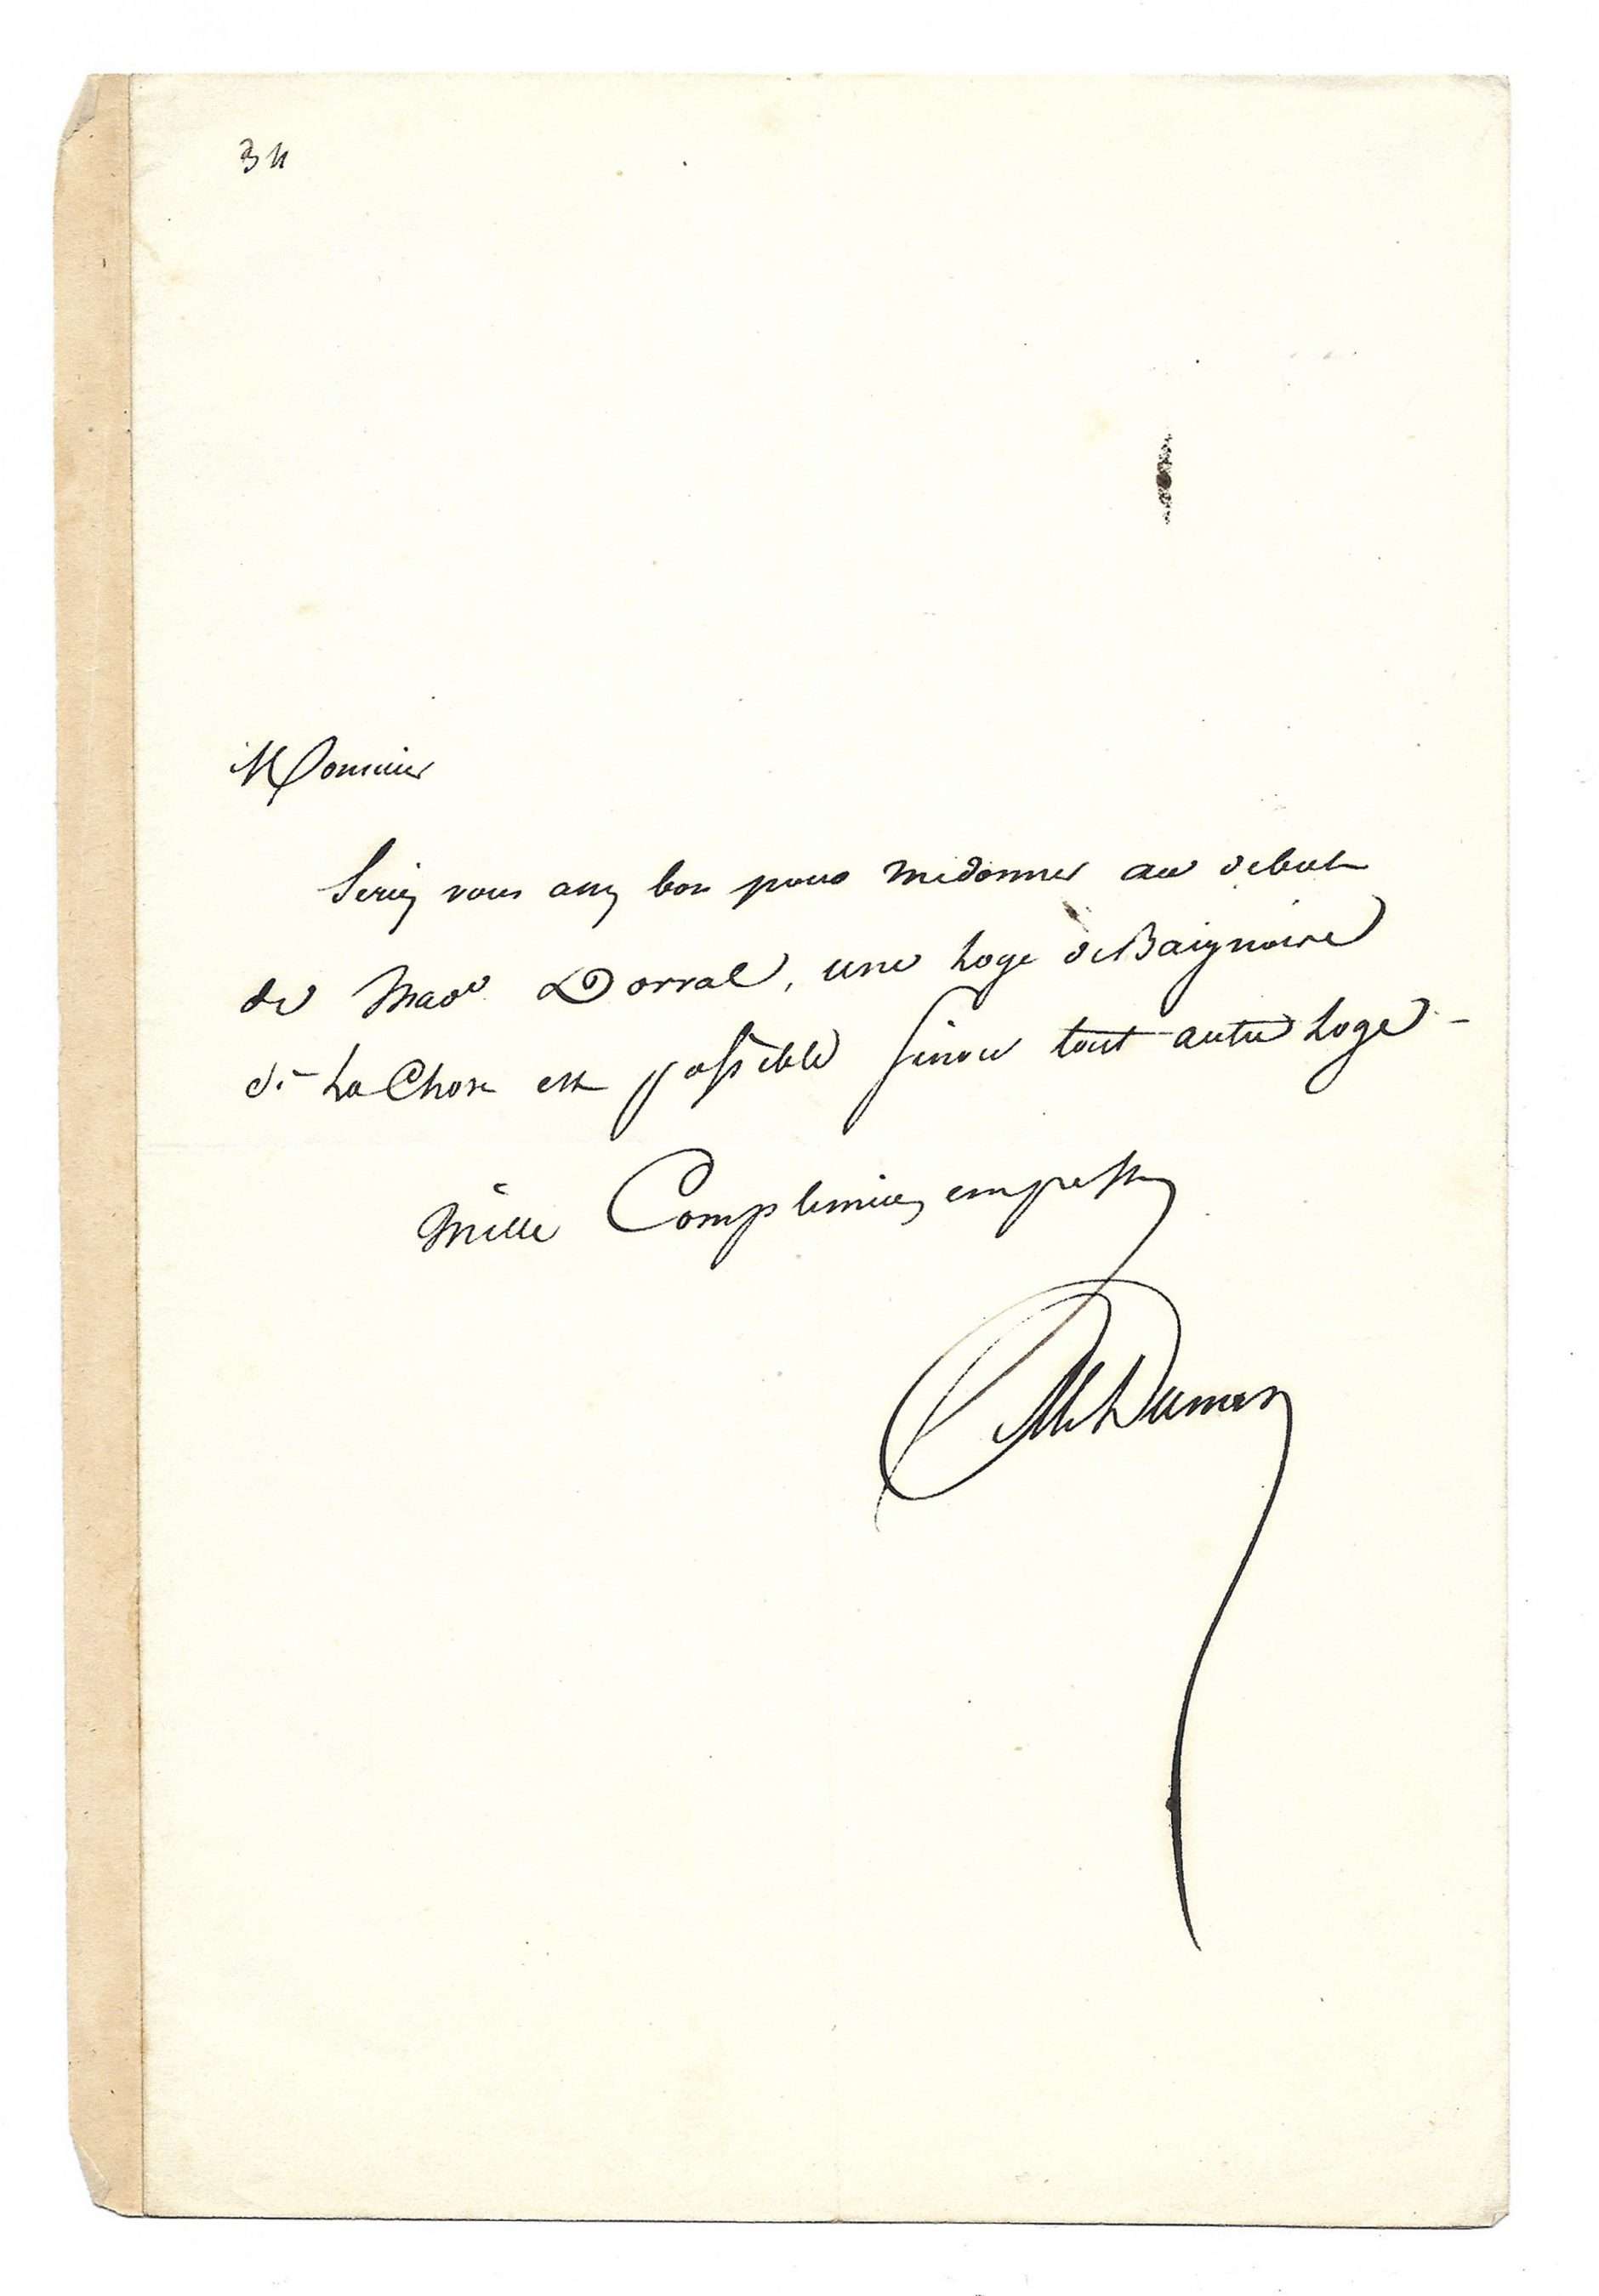 34
Monsieur
Seriez vous assez bon pour me donner au debut
de Made Dorval, une Loge de Baignoire
si La Chose est possible sinon tout autre Loge -
Mille Complimens empressés
Alex Dumas